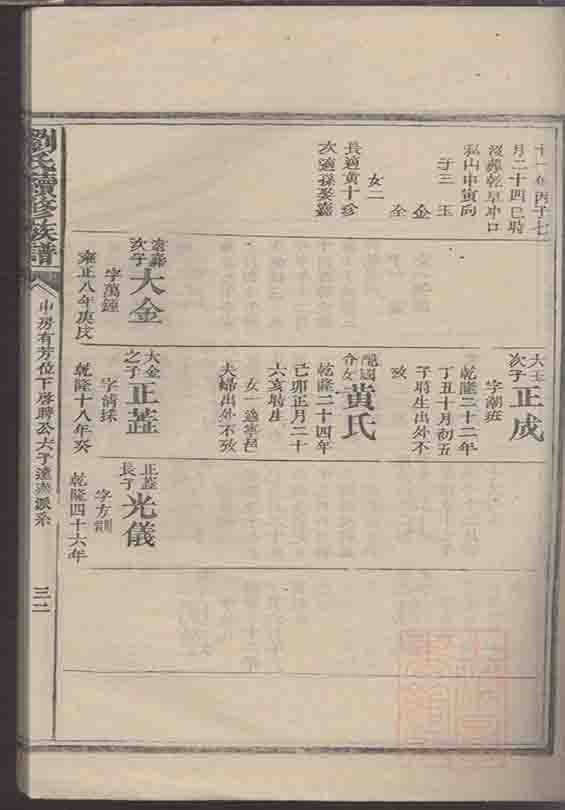 十一年丙子七
月二十四巳時
沒葬乾阜冲口
私山申寅向
子三 玉
金
全
女二
長適黄十珍
次適孫
遠
次子
大金
字萬鍾
雍正八年庚戌
大玉
次子
正成
字潮班
乾隆二十二年
丁丑十月初五
子時生出外不
攷
國
女
黄氏
乾隆二十四年
己卯正月二十
六亥時生
女一適寧邑
夫婦出外不攷
大金
之子
正蓋
字清採
乾隆十八年癸
正蓋
長子
光儀
字方
乾隆四十六年
劉氏續修族譜
中房有芳位下啓聘公六子達派系
三二